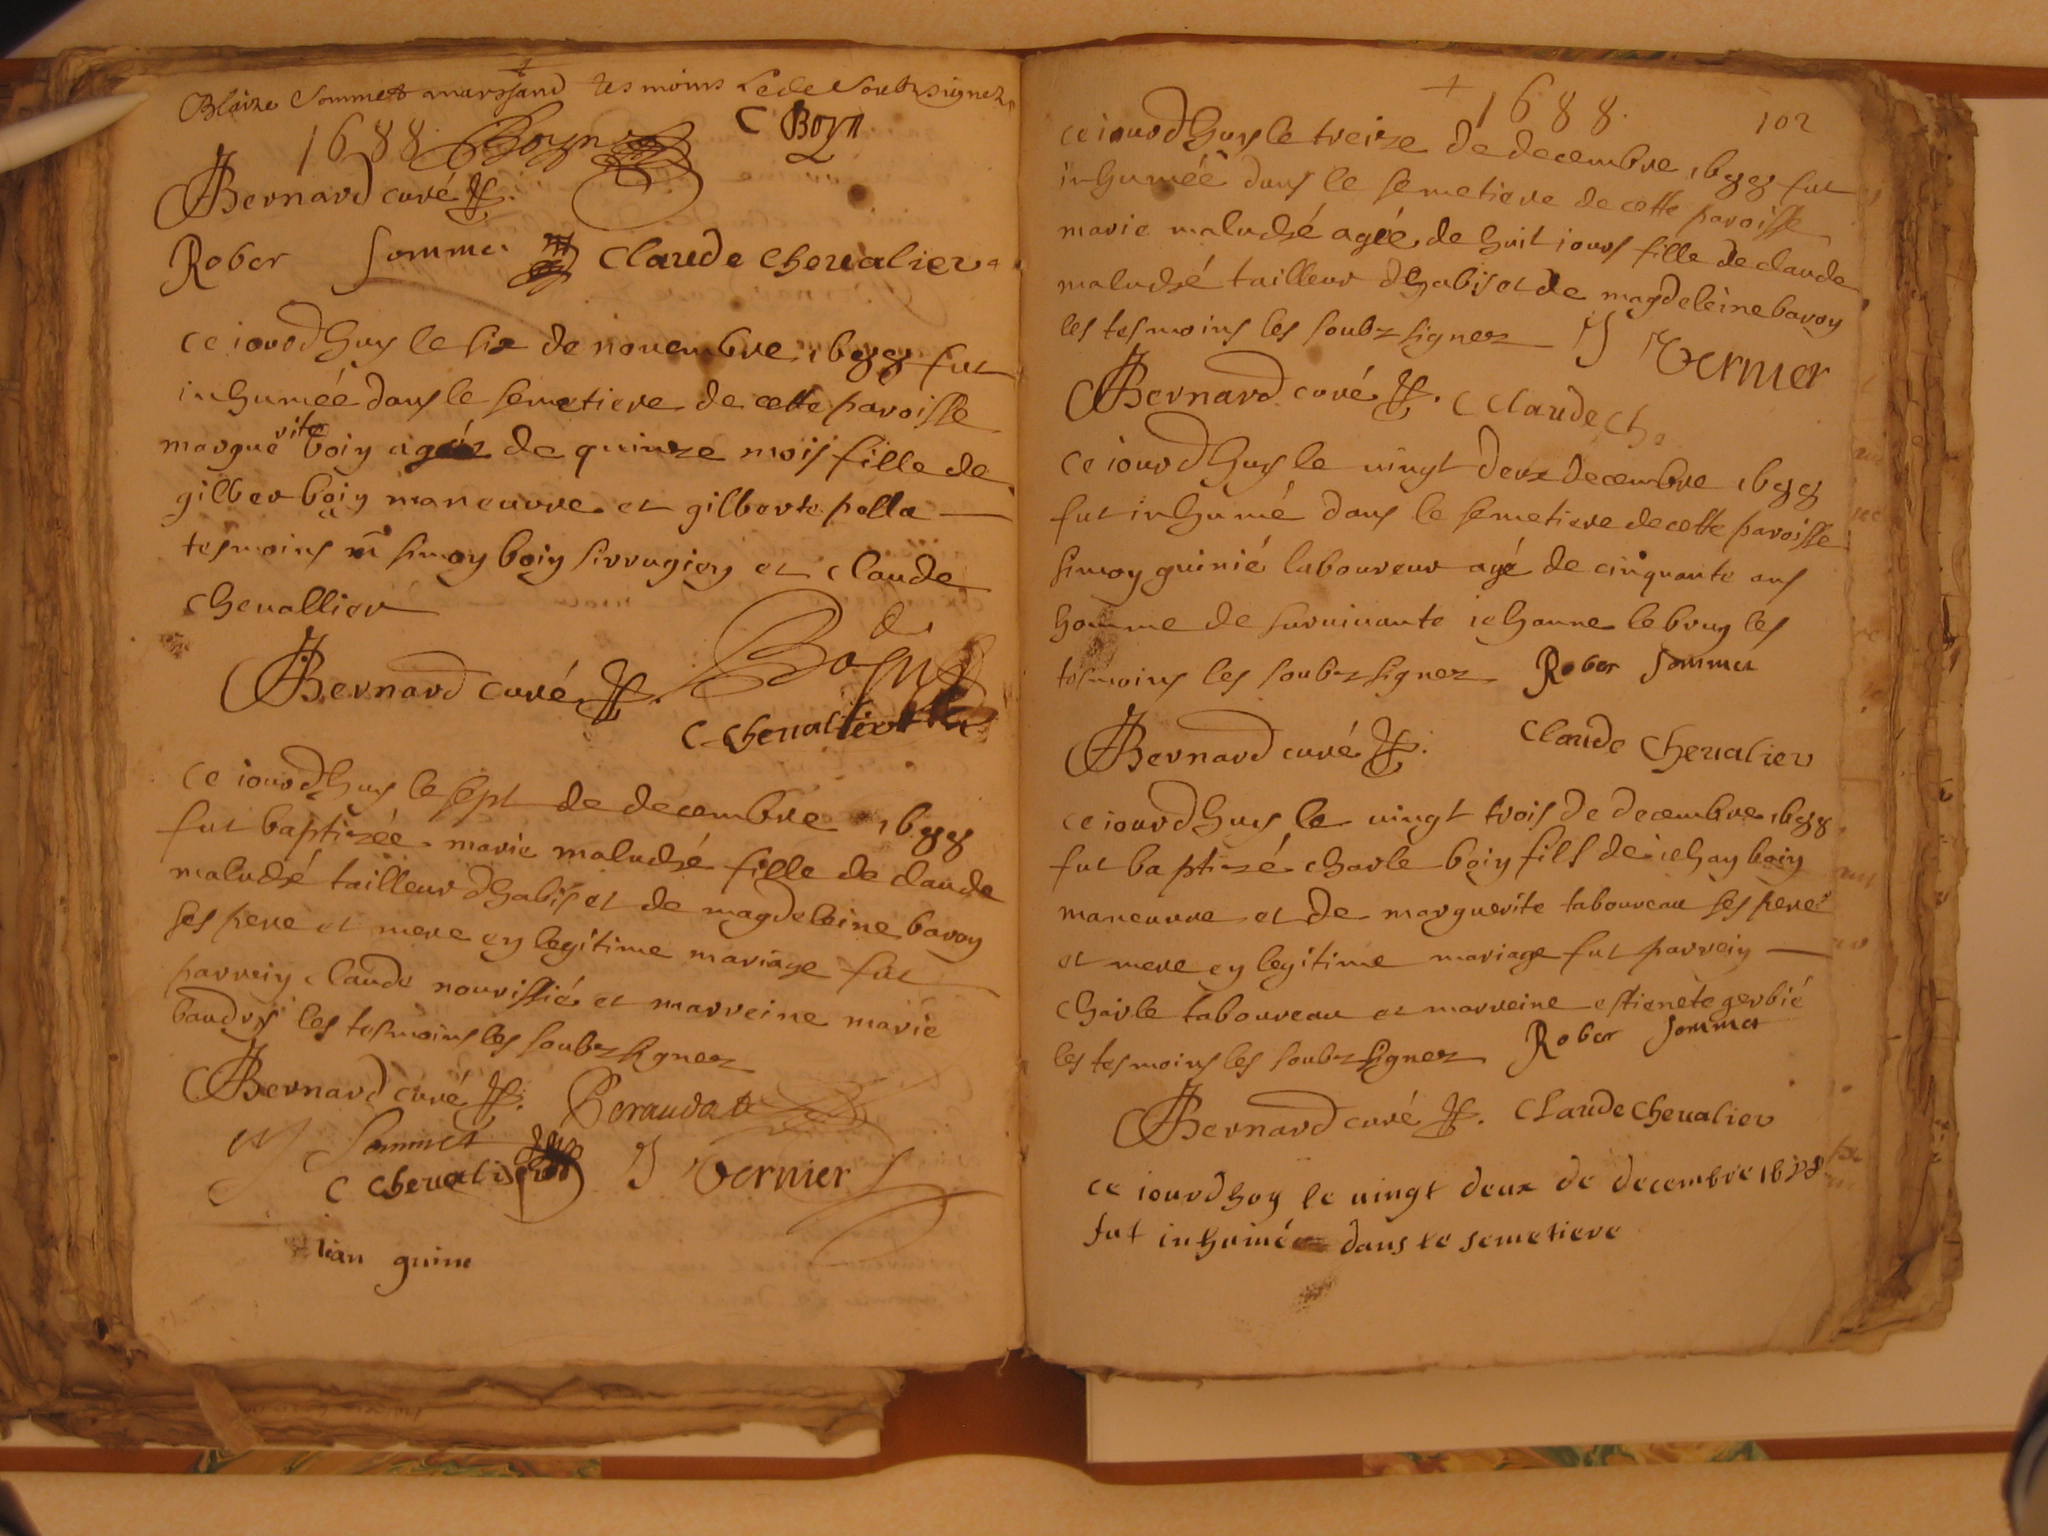 Blaize Sommet marchand tesmoins Soubzsignez
1688 Boyn C Boyn
Bernard curé
Rober Sommet Claude Chevalier
ce iourdhuy le six de novembre 1688 fut
inhumée dans le semetiere de cette paroisse
marguerite boiy agée de quinze mois fille de
gilber boiy maneuvre et gilberte pella
tesmoins m simoy boiy sirrugiey et claude
chevallier
Bernard curé Boyn
C Chevalier
ce iourdhuy le sept de decembre 1688
fut baptizée marie maludzé fille de claude
maludzé tailleur dhabis et de magdeleine baroy
ses pere et mere ey legitime mariage fut
parreiy claude nourissié et marreine marie
baudry les tesmoins les soubz signez
Bernard curé Peraudat
Sommet
C Chevalier J Vernier
guine
1688. 102
ce iourdhuy le treize de decembre 1688 fut
inhumée dans le semetiere de cette paroisse
marie maludzé agée de huit iours fille de claude
maludzé tailleur dhabis et de magdeleine baroy
les tesmoins les soubz signez J Vernier
Bernard curé C Claude Ch
ce iourdhuy le vingt deux decembre 1688
fut inhumé dans le semetiere de cette paroisse
simoy guinié laboureur agé de cinquante ans
homme de survivante iehanne lebruy les
tesmoins les soubz signez Rober Sommet
Bernard curé Claude Chevalier
ce iourdhuy le vingt trois de decembre 1688
fut baptizé charle boiy fils de iehay boiy
maneuvre et de marguerite taboureau ses pere
et mere ey legitime mariage fut parreiy
charle taboureau et marreine estienete gerbié
les tesmoins les soubz signez Rober Sommet
Bernard curé Claude Chevalier
ce iourdhuy le vingt deux de decembre 1688
fut inhumé dans le semetiere